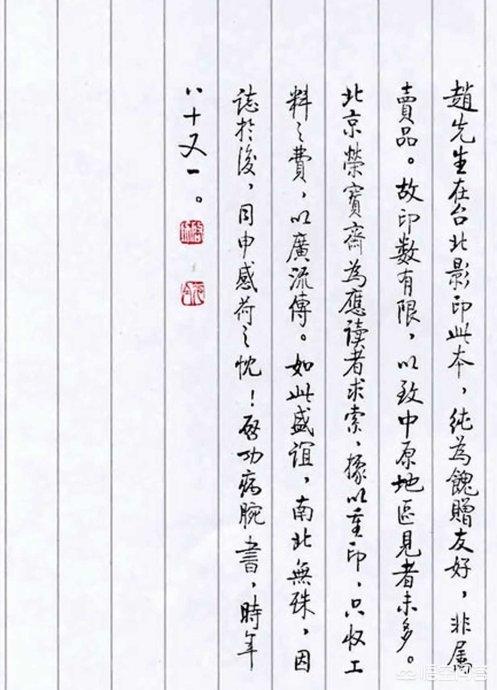 趙先生在台北影印此本，純為餽贈友好，非屬
賣品。故印數有限，以致中原地區見者未多。
北京榮寶齋為應讀者求索，據以重印，只收工
料之費，以廣流傳。如此盛誼，南北無殊，因
誌於後，同申感荷之忱！啓功病腕書，時年
八十又一。
啓功